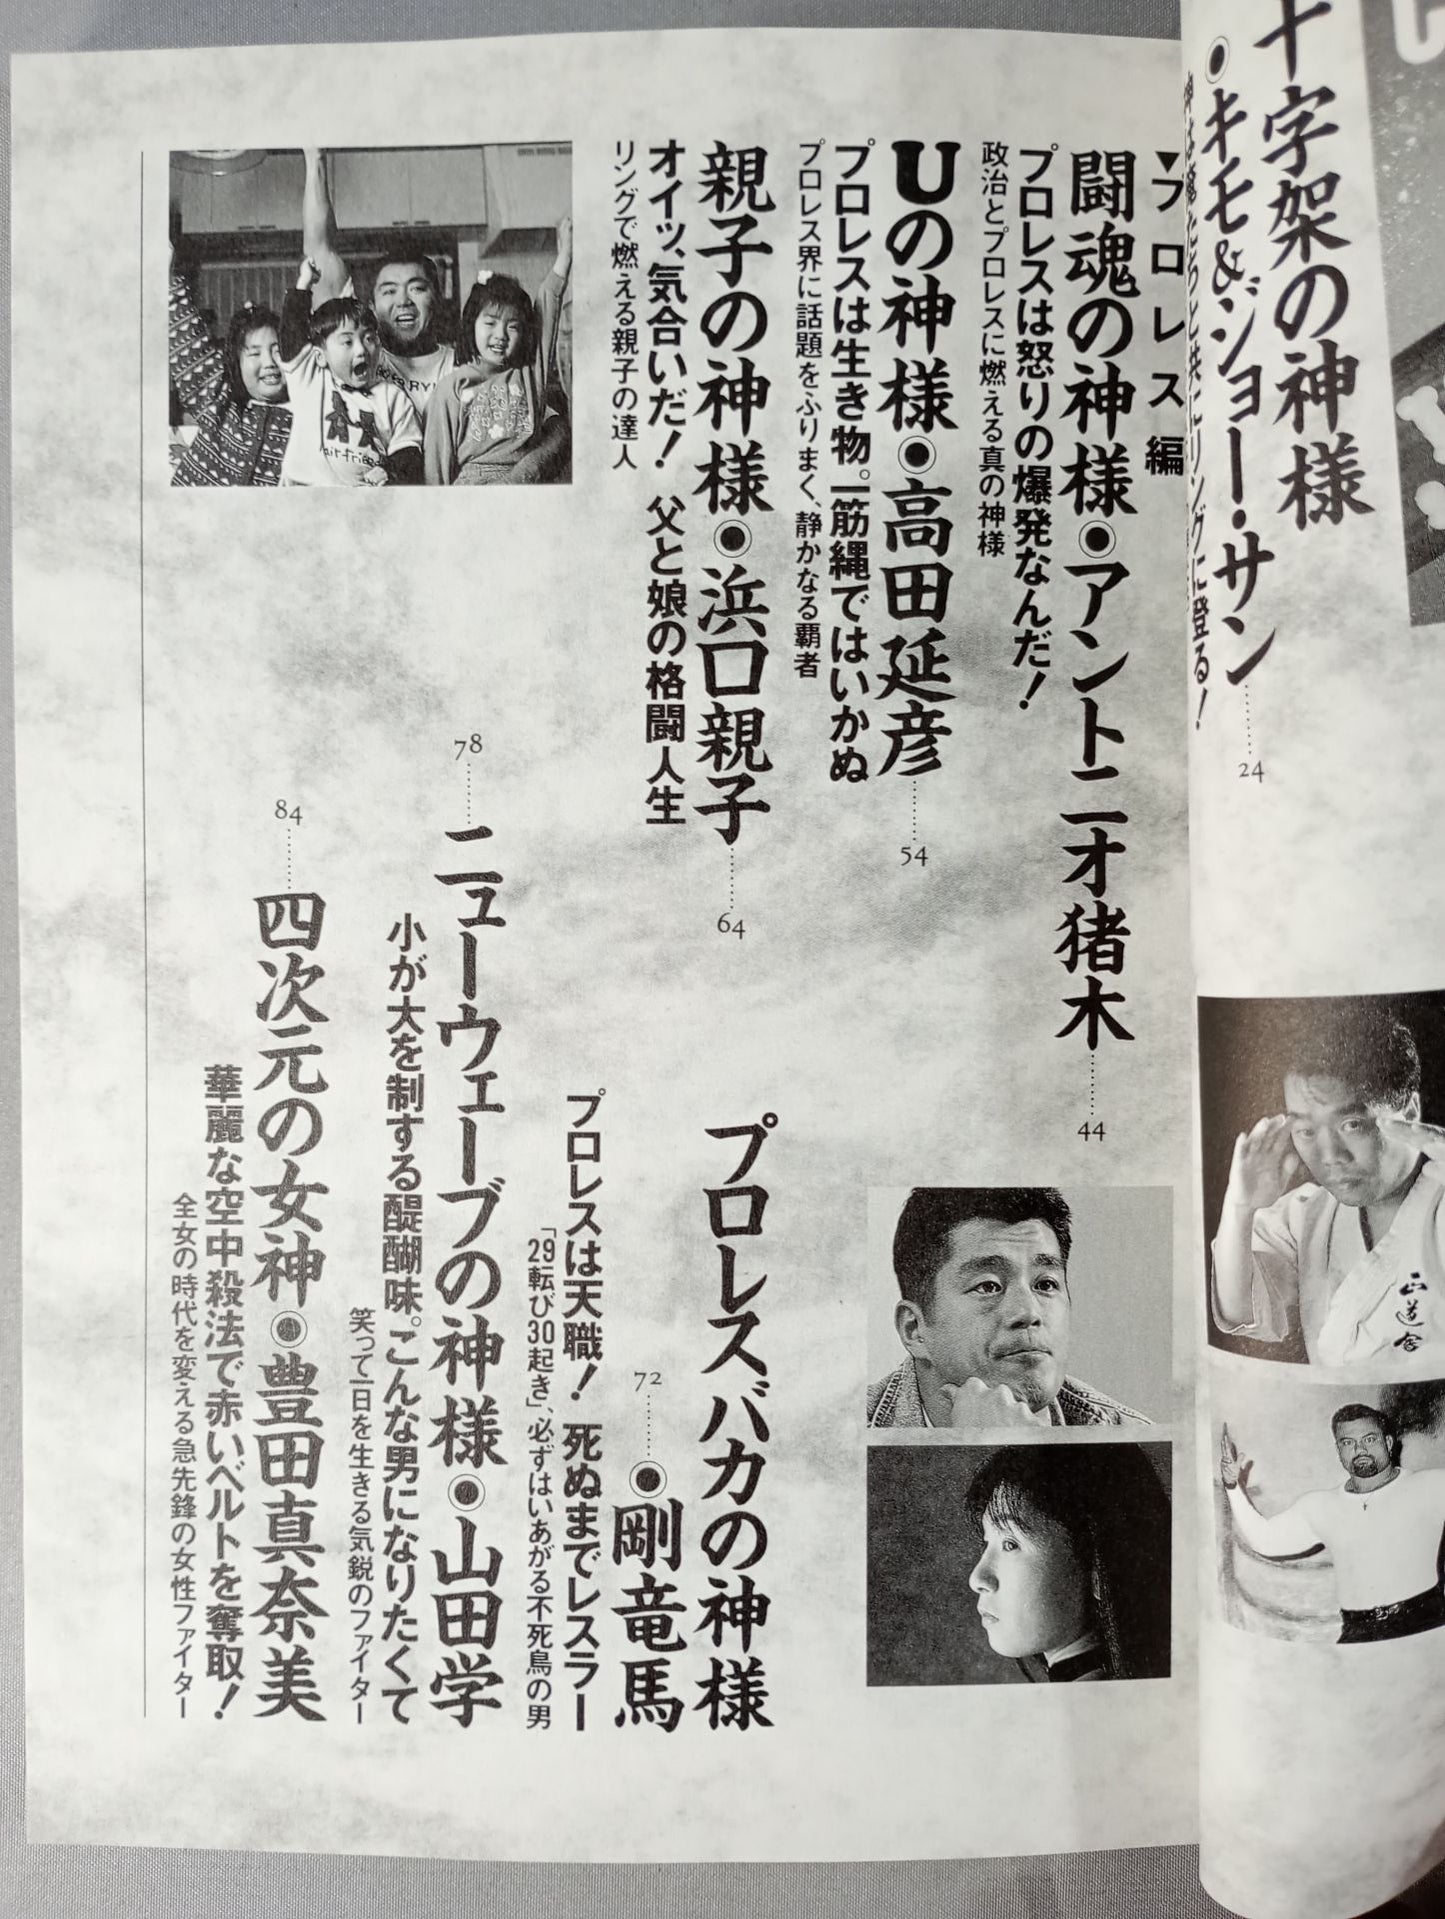 十字架の神様
◉キモ&ジョー・サン
24
▼プロレス編
闘魂の神様◉アントニオ猪木
44
プロレスは怒りの爆発なんだ!
政治とプロレスに燃える真の神様
Uの神様◉高田延彦
54
プロレスは生き物。一筋縄ではいかぬ
プロレス界に話題をふりまく、静かなる覇者
親子の神様◉浜口親子
64
オイッ、気合いだ! 父と娘の格闘人生
リングで燃える親子の達人
プロレスバカの神様
◉剛竜馬
72
プロレスは天職! 死ぬまでレスラー
「29転び30起き」、必ずはいあがる不死鳥の男
ニューウェーブの神様◉山田学
78
小が大を制する醍醐味。こんな男になりたくて
笑って一日を生きる気鋭のファイター
四次元の女神◉豊田真奈美
84
華麗な空中殺法で赤いベルトを奪取!
全女の時代を変える急先鋒の女性ファイター
正道会